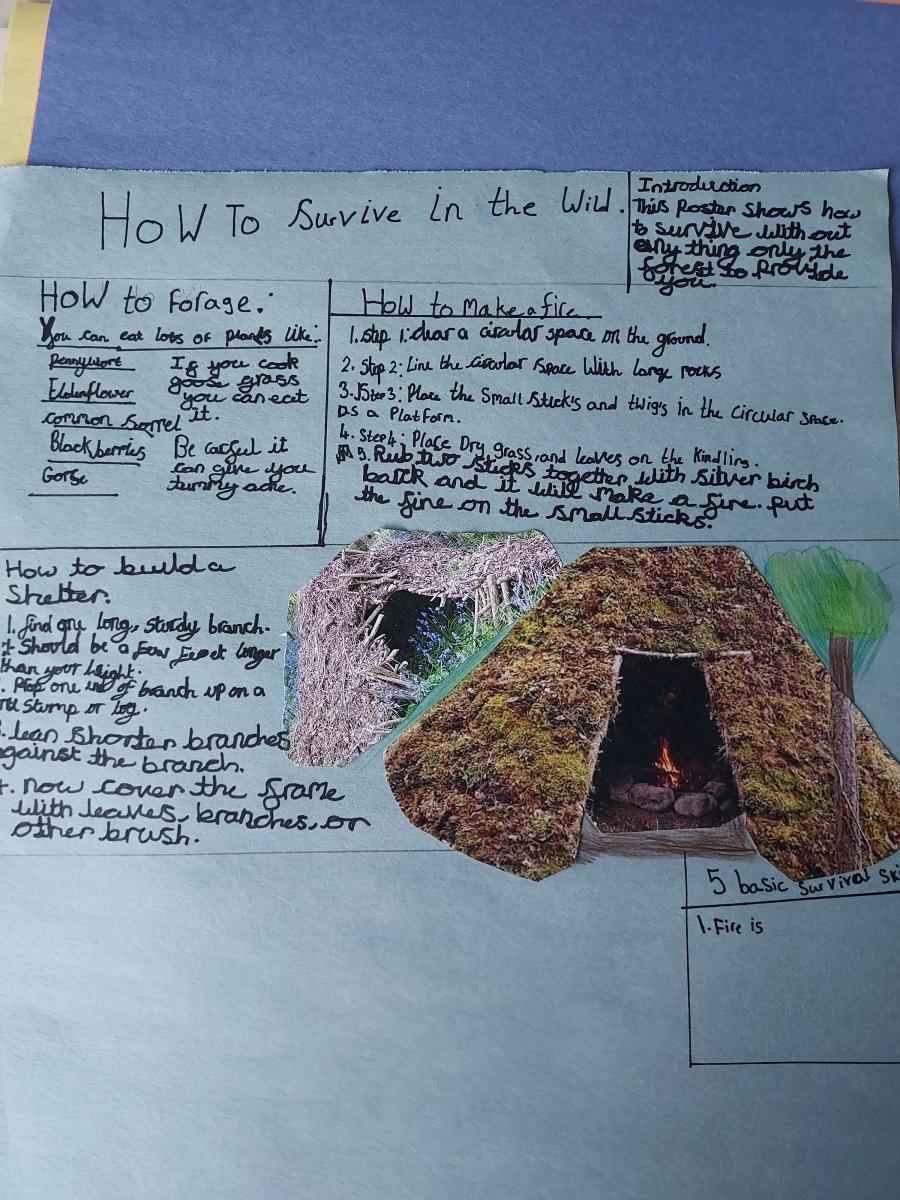 HOW TO Survive in the Wild.
Introduction
This Poster shows how
to survive with out
any thing only the
forest to Provide
you.
HOW to Forage:
You can eat lots of plants like:
Pennywort
Elderflower
common Sorrel
Blackberries
Gorse
If you cook
goose grass
you can eat
it.
Be carful it
can give you
tummy ache.
How to Make a fire
1. Step 1: clear a circular space on the ground.
2. Step 2: Line the circular space With large rocks
3. Step 3: Place the Small Stick's and twig's in the circular space.
as a Platform.
4. Step 4: Place Dry grass and leaves on the Kindling.
5. Rub two sticks together with silver birch
bark and it will make a fire. put
the fire on the small sticks.
How to build a
Shelter.
1. find one long, sturdy branch.
it Should be a few feet longer
than your height.
. Prop one end of branch up on a
Stump or log.
. Lean shorter branches
against the branch.
. now cover the frame
with leaves, branches, or
other brush.
5 basic Survival
1. Fire is